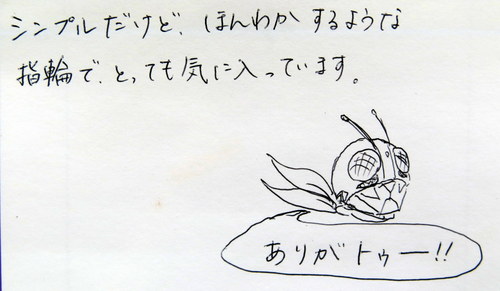 シンプルだけど、ほんわかするような
指輪で、とっても気に入っています。
ありがトゥー!!